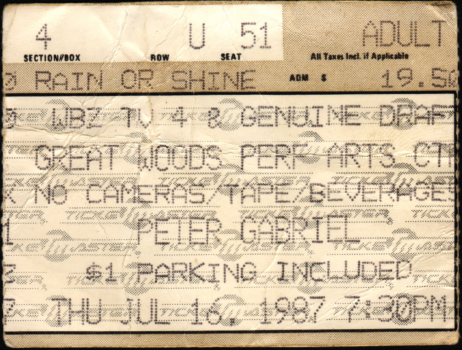 4 U 51 ADULT
SECTION/BOX ROW SEAT All Taxes Incl. if Applicable
RAIN OR SHINE ADM $ 19.50
WBZ TV 4 & GENUINE DRAF
GREAT WOODS PERF ARTS CTR
NO CAMERAS/TAPE/BEVERAGES
PETER GABRIEL
$1 PARKING INCLUDED
7 THU JUL 16, 1987 7:30PM